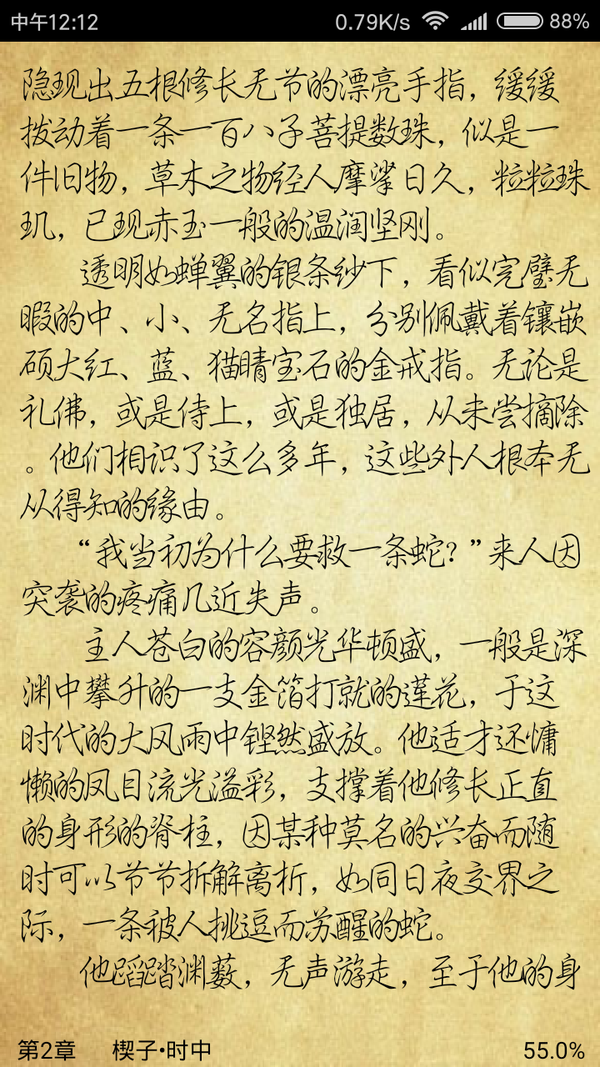 中午12:12 0.79K/s 88%
隐现出五根修长无节的漂亮手指，缓缓
拨动着一条一百八子菩提数珠，似是一
件旧物，草木之物经人摩挲日久，粒粒珠
玑，已现赤玉一般的温润坚刚。
透明如蝉翼的银条纱下，看似完璧无
暇的中、小、无名指上，分别佩戴着镶嵌
硕大红、蓝、猫睛宝石的金戒指。无论是
礼佛，或是侍上，或是独居，从未尝摘除
。他们相识了这么多年，这些外人根本无
从得知的缘由。
“我当初为什么要救一条蛇？”来人因
突袭的疼痛几近失声。
主人苍白的容颜光华顿盛，一般是深
渊中攀升的一支金箔打就的莲花，于这
时代的大风雨中铿然盛放。他适才还慵
懒的凤目流光溢彩，支撑着他修长正直
的身形的脊柱，因某种莫名的兴奋而随
时可以节节拆解离析，如同日夜交界之
际，一条被人挑逗而苏醒的蛇。
他蹈踏渊薮，无声游走，至于他的身
第2章 楔子•时中 55.0%